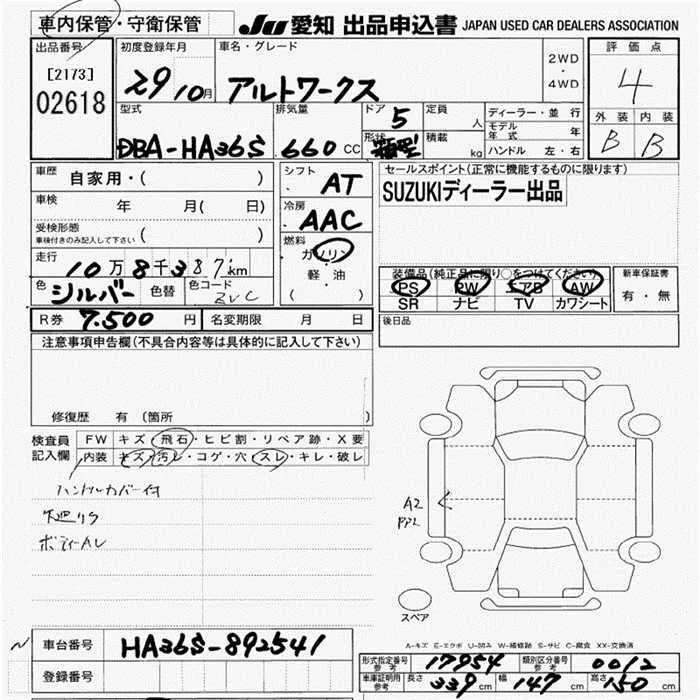 車内保管・守衛保管
JU 愛知 出品申込書 JAPAN USED CAR DEALERS ASSOCIATION
出品番号 初度登録年月 車名・グレード 評価点
[2173] 29 10月 アルトワークス 2WD・4WD 4
02618
型式 排気量 ドア 5 定員 人 ディーラー・並行 外装 内装
モデル年式 年
DBA-HA36S .660 CC 形状 箱型 積載 kg ハンドル 左・右 B B
車歴 自家用・( ) シフト AT セールスポイント(正常に機能するものに限ります)
車検 年 月( 日) 冷房 AAC SUZUKIディーラー出品
受検形態 ( )
車検付きのみ記入して下さい
燃料 ガソリン
走行 10万8千387km 軽・油 装備品(純正品に限り○をつけてください) 新車保証書
色 シルバー 色替 色コード ZVC ( ) PS PW エアB AW 有・無
SR ナビ TV カワシート
R券 7.500 円 名変期限 月 日 後日品
注意事項申告欄(不具合内容等は具体的に記入して下さい)
修復歴 有 (箇所 )
検査員 FW キズ・飛石・ヒビ割・リペア跡・X要
記入欄 内装 キズ・汚レ・コゲ・穴・スレ・キレ・破レ
ハンドルカバー付
A2
ボディーAL
スペア
A-キズ E-エクボ U-凹み W-補修跡 S-サビ C-腐食 XX-交換済
車台番号 HA36S-892541
形式指定番号 参考 17954 類別区分番号 参考 0012
登録番号 車庫証明用 参考 長さ 339 cm 幅 147 cm 高さ 150 cm